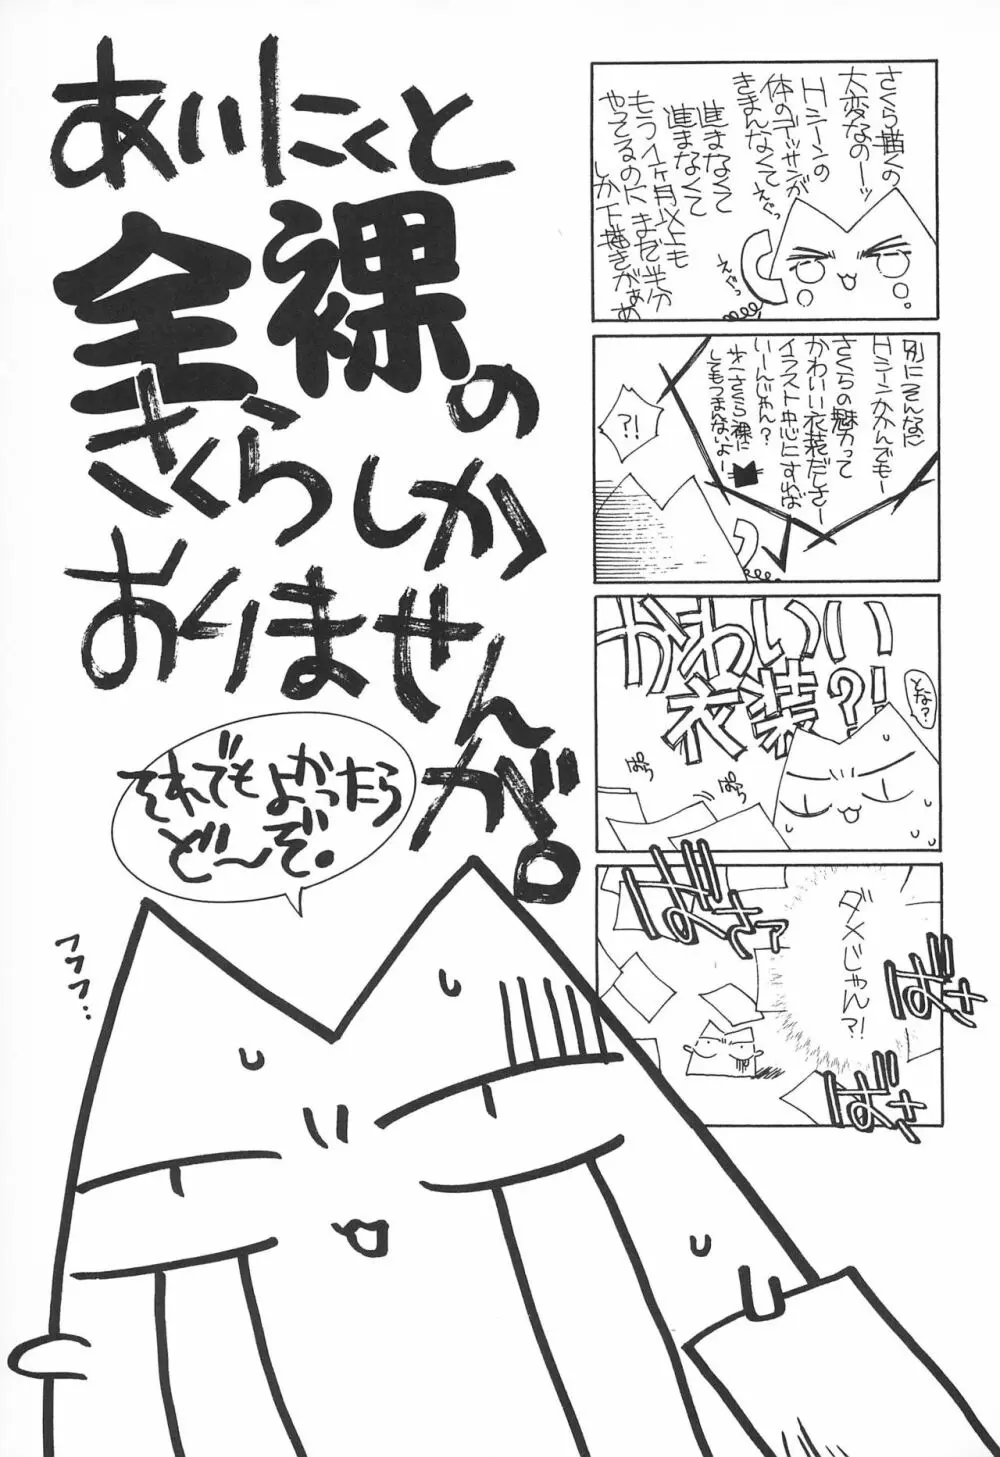 さくら描くの
大変なのーッ
Hシーンの
体のデッサンが
きまんなくて
えぐっ
進まなくて
進まなくて
もう1ヶ月以上も
やってるのにまだ半分
しか下描きがぁぁ
えぐっ
別にそんなに
Hシーンかかんでもー
さくらの魅力って
かわいい衣装だしさー
イラスト中心にすれば
いーんじゃん?
さくら裸に
してもつまんないよー
?!
かわいい
衣装?!
とな?
ぱらっ
ぱらっ
ばさっ
ダメじゃん?!
ばさっ
ばさっ
あいにくと
全裸の
さくらしか
おりませんが。
それでもよかったら
ど〜ぞ。
フフフ..